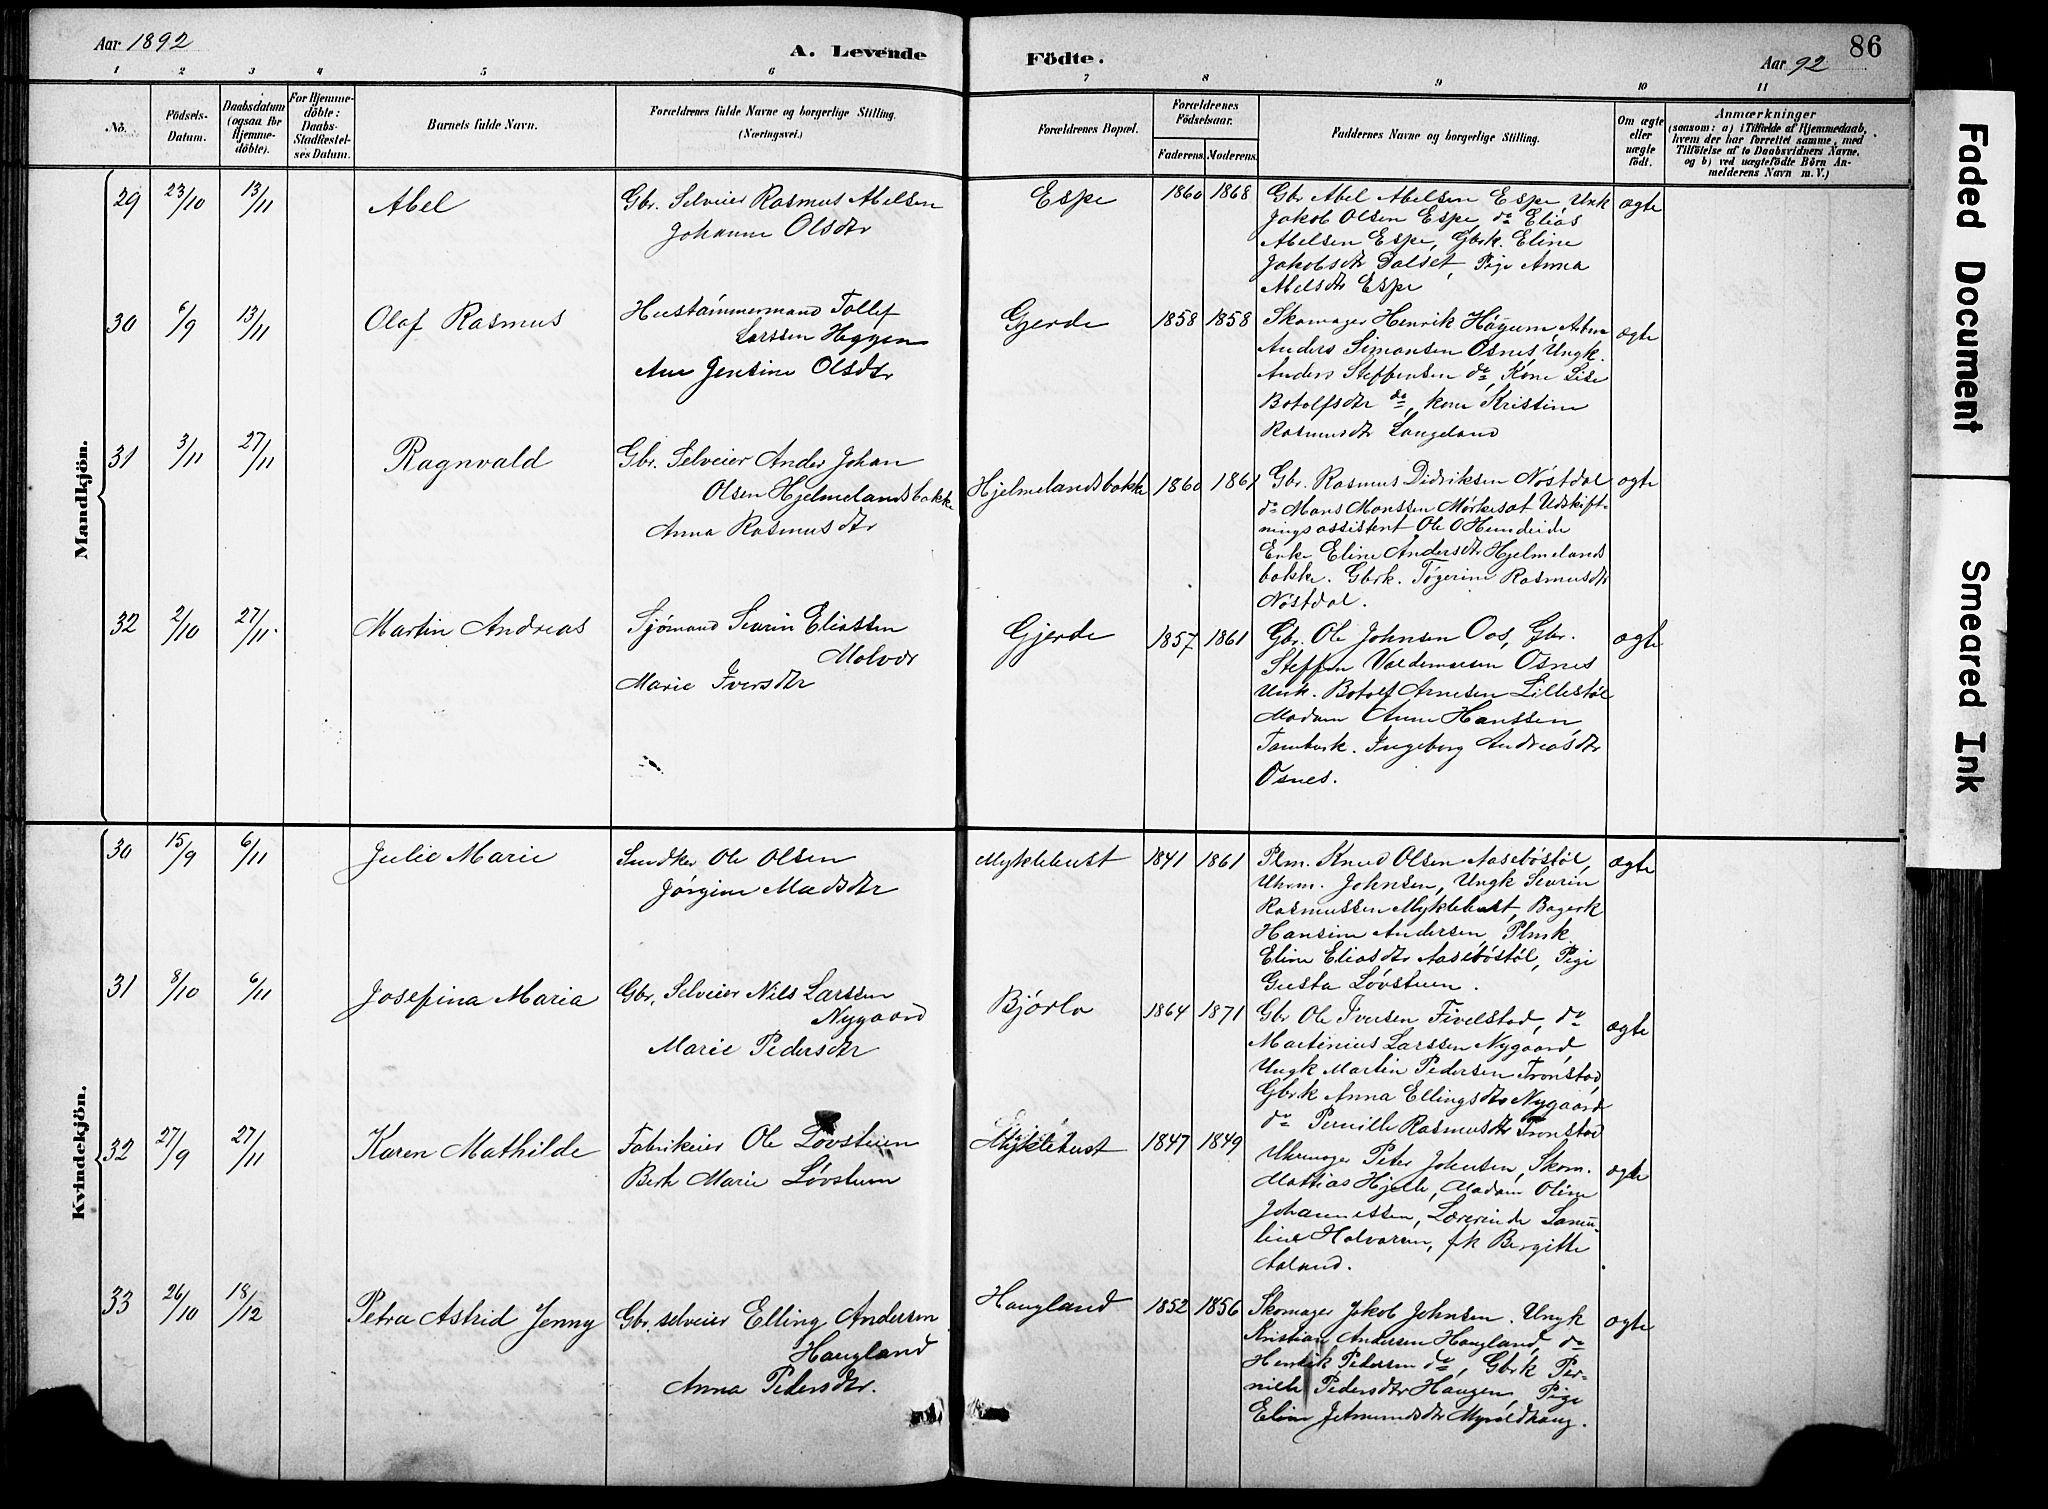 Aar 1892
A. Levende
Födte.
Aar 92
86
1 2 3 4 5 6 7 8 9 10 11
No.
Födsels-
Datum.
Daabsdatum
(ogsaa for
Hjemme-
döbte).
For Hjemme-
döbte:
Daabs-
Stadfæstel-
ses Datum.
Barnets fulde Navn.
Forældrenes fulde Navne og borgerlige Stilling.
(Næringsvei.)
Forældrenes Bopæl.
Forældrenes
Födselsaar.
Faderens. Moderens.
Faddernes Navne og borgerlige Stilling.
Om ægte
eller
uægte
født.
Anmærkninger
(saasom: a) i Tilfælde af Hjemmedaab,
hvem der har forrettet samme, med
Tilföielse af to Daabsvidners Navne,
og b) ved uægtefödte Börn An-
melderens Navn m. V.)
Mandkjön.
29 23/10 13/11 Abel
Gbr. Selveier Rasmus Abelsen
Johanne Olsdtr
Espe 1860 1868
Gbr Abel Abelsen Espe, Unk
Jakob Olsen Espe, do Elias
Abelsen Espe, Gbrk. Eline
Jakobsdtr Dalset, Pige Anna
Abelsdtr Espe
ægte
30 6/9 13/11 Olaf Rasmus
Hustømmermand Tollef
Larssen Heggen
Ane Jensine Olsdtr
Gjerde 1858 1858
Skomager Henrik Høyum, Arbm
Anders Simonsen Osnes, Ungk.
Anders Steffensen do, Kone Lise
Botolfsdtr do, kone Kristine
Rasmusdtr Langeland
ægte
31 3/11 27/11 Ragnvald
Gbr. Selveier Ander Johan
Olsen Hjelmelandsbakke
Anna Rasmusdtr
Hjelmelandsbakke 1860 1861
Gbr. Rasmus Didriksen Nøstdal
do Mons Monssen Mørkesat Udskift-
ningsassistent Ole O Hundeide
Enke Eline Andersdtr Hjelmelands
bakke. Gbrk. Tøgerine Rasmusdtr
Nøstdal.
ægte
32 2/10 27/11. Martin Andreas
Sjømand Sevrin Eliassen
Molvær
Marie Iversdtr
Gjerde 1857 1861
Gbr. Ole Johnsen Oos, Gbr.
Steffen Valdemarsen Osnes
Unk. Botolf Arnesen Lillestøl
Madam Anne Hanssen
Tamburk. Ingeborg Andreasdtr
Osnes.
ægte
Kvindekjön.
30 15/9 6/11 Julie Marie
Snedker Ole Olsen
Jørgine Madsdtr
Myklebust 1841 1861
Plm. Knud Olsen Aasebøstøl,
Uhrm. Johnsen, Ungk Sevrin
Rasmussen Myklebust, Bagerk
Hansine Andersen, Plmk
Eline Eliasdtr Aasebøstøl, Pige
Gusta Løvstuen.
ægte
31 8/10 6/11 Josefina Maria
Gbr. Selveier Nils Larssen
Nygaard
Marie Pedersdtr
Bjørlo 1864 1871
Gbr Ole Iversen Fivelstad, do
Martinius Larssen Nygaard,
Ungk Martin Pedersen Tronstad,
Gbrk Anna Ellingsdtr Nygaard
do Pernille Rasmusdtr Tronstad
ægte
32 27/9 27/11 Karen Mathilde
Fabrikeier Ole Løvstuen
Berte Marie Løvstuen
Myklebust 1847 1849
Uhrmager Peter Johnsen, Skom.
Mattias Hjelle, Madam Oline
Johannessen, Lærerinde
Halvorsen, fk Bergitte
Aaland.
ægte
33 26/10 18/12 Petra Astrid Jenny
Gbr. selveier Elling Andersen
Haugland
Anna Pedersdtr.
Haugland 1852 1856
Skomager Jakob Johnsen. Ungk
Kristian Andersen Haugland, do
Henrik Pedersen do, Gbrk Per-
nille Pedersdtr Haugen, Pige
Eline Jetmundsdtr Myroldhaug.
ægte
Faded Document
Smeared Ink